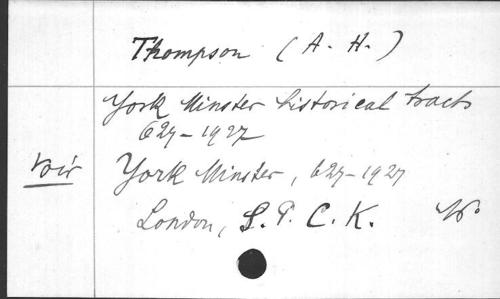 Thompson (A. H.)
York Minster historical tracts
627-1927
Voir York Minster, 627-1927
London, S. P. C. K.